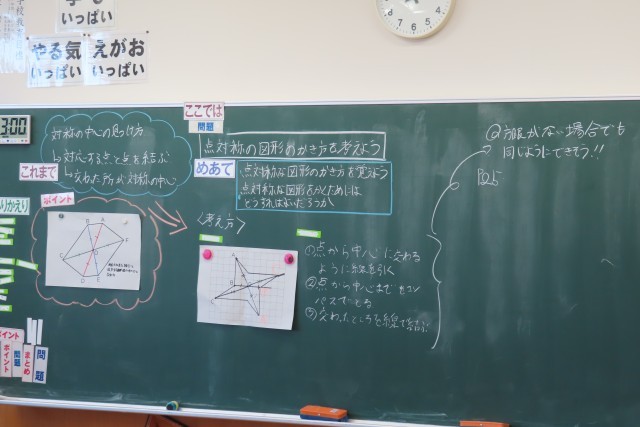 いっぱい
やる気
いっぱい
えがお
いっぱい
3:00
これまで
対称の中心の見つけ方
↳対応する点と点を結ぶ
↳交わった所が対称の中心
ここでは
問題
点対称の図形のかき方を考えよう
めあて
点対称な図形のかき方を覚えよう
点対称な図形をかくためには
どうすればよいだろうか
ポイント
<考え方>
①点から中心に交わる
ように線を引く
②点から中心までをコン
パスでとる
③交わったところを線で結ぶ
方眼がない場合でも
同じようにできそう!!
P25
りかえり
ポイント
ポイント
問題
まとめ
問題